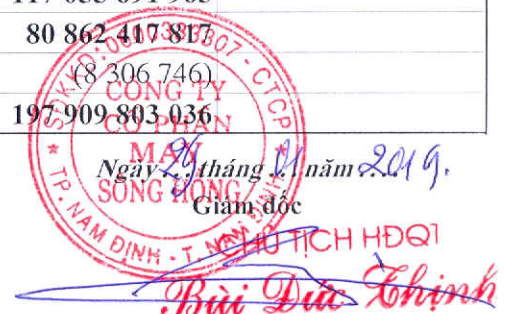 80 862 417 817
(8 306 746)
197 909 803 036
CÔNG TY
CỔ PHẦN
MAY
SÔNG HỒNG
TP. NAM ĐỊNH - T. NAM ĐỊNH
Ngày 29 tháng 01 năm 2019.
Giám đốc
CHỦ TỊCH HĐQT
Bùi Đức Thịnh